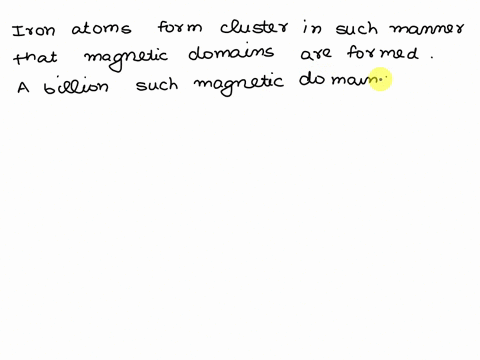 Iron atoms form cluster in such manner
that magnetic domains are formed.
A billion such magnetic domain